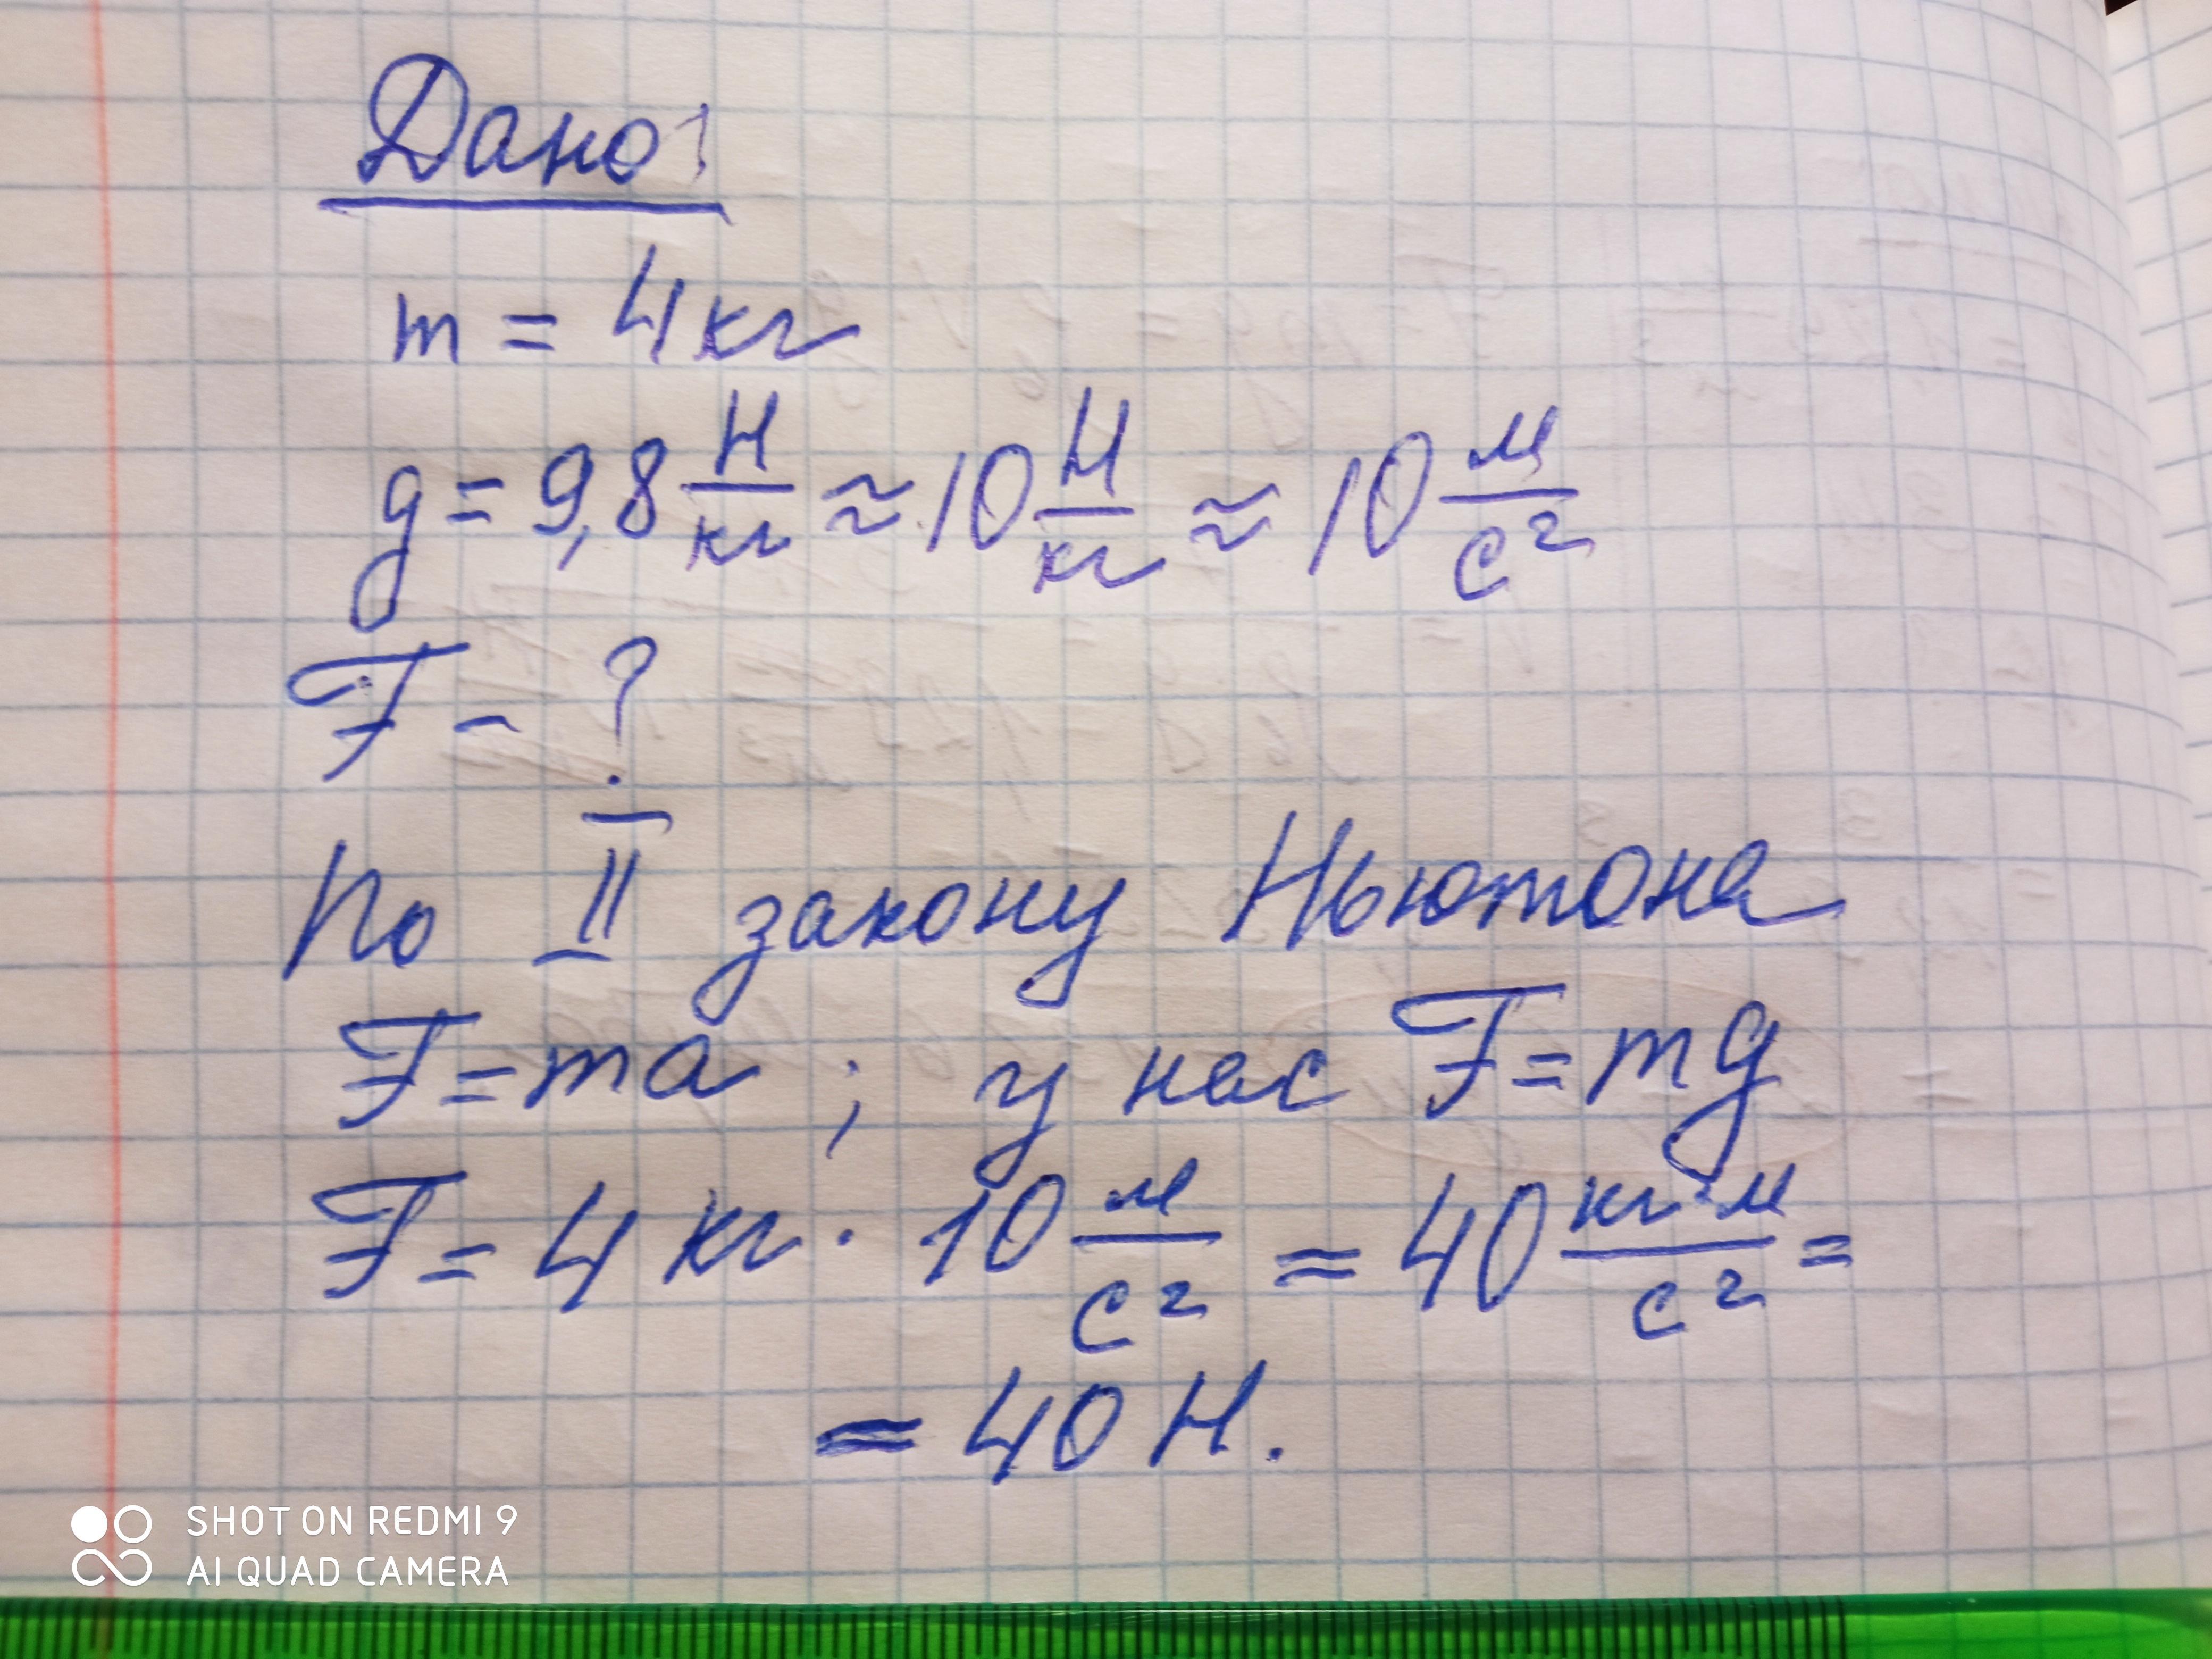 Дано:
m = 4 кг
g = 9,8 Н/кг ≈ 10 Н/кг ≈ 10 м/с²
F - ?
По II закону Ньютона
F = ma ; у нас F = mg
F = 4 кг · 10 м/с² = 40 кг·м/с² =
= 40 Н.
SHOT ON REDMI 9
AI QUAD CAMERA